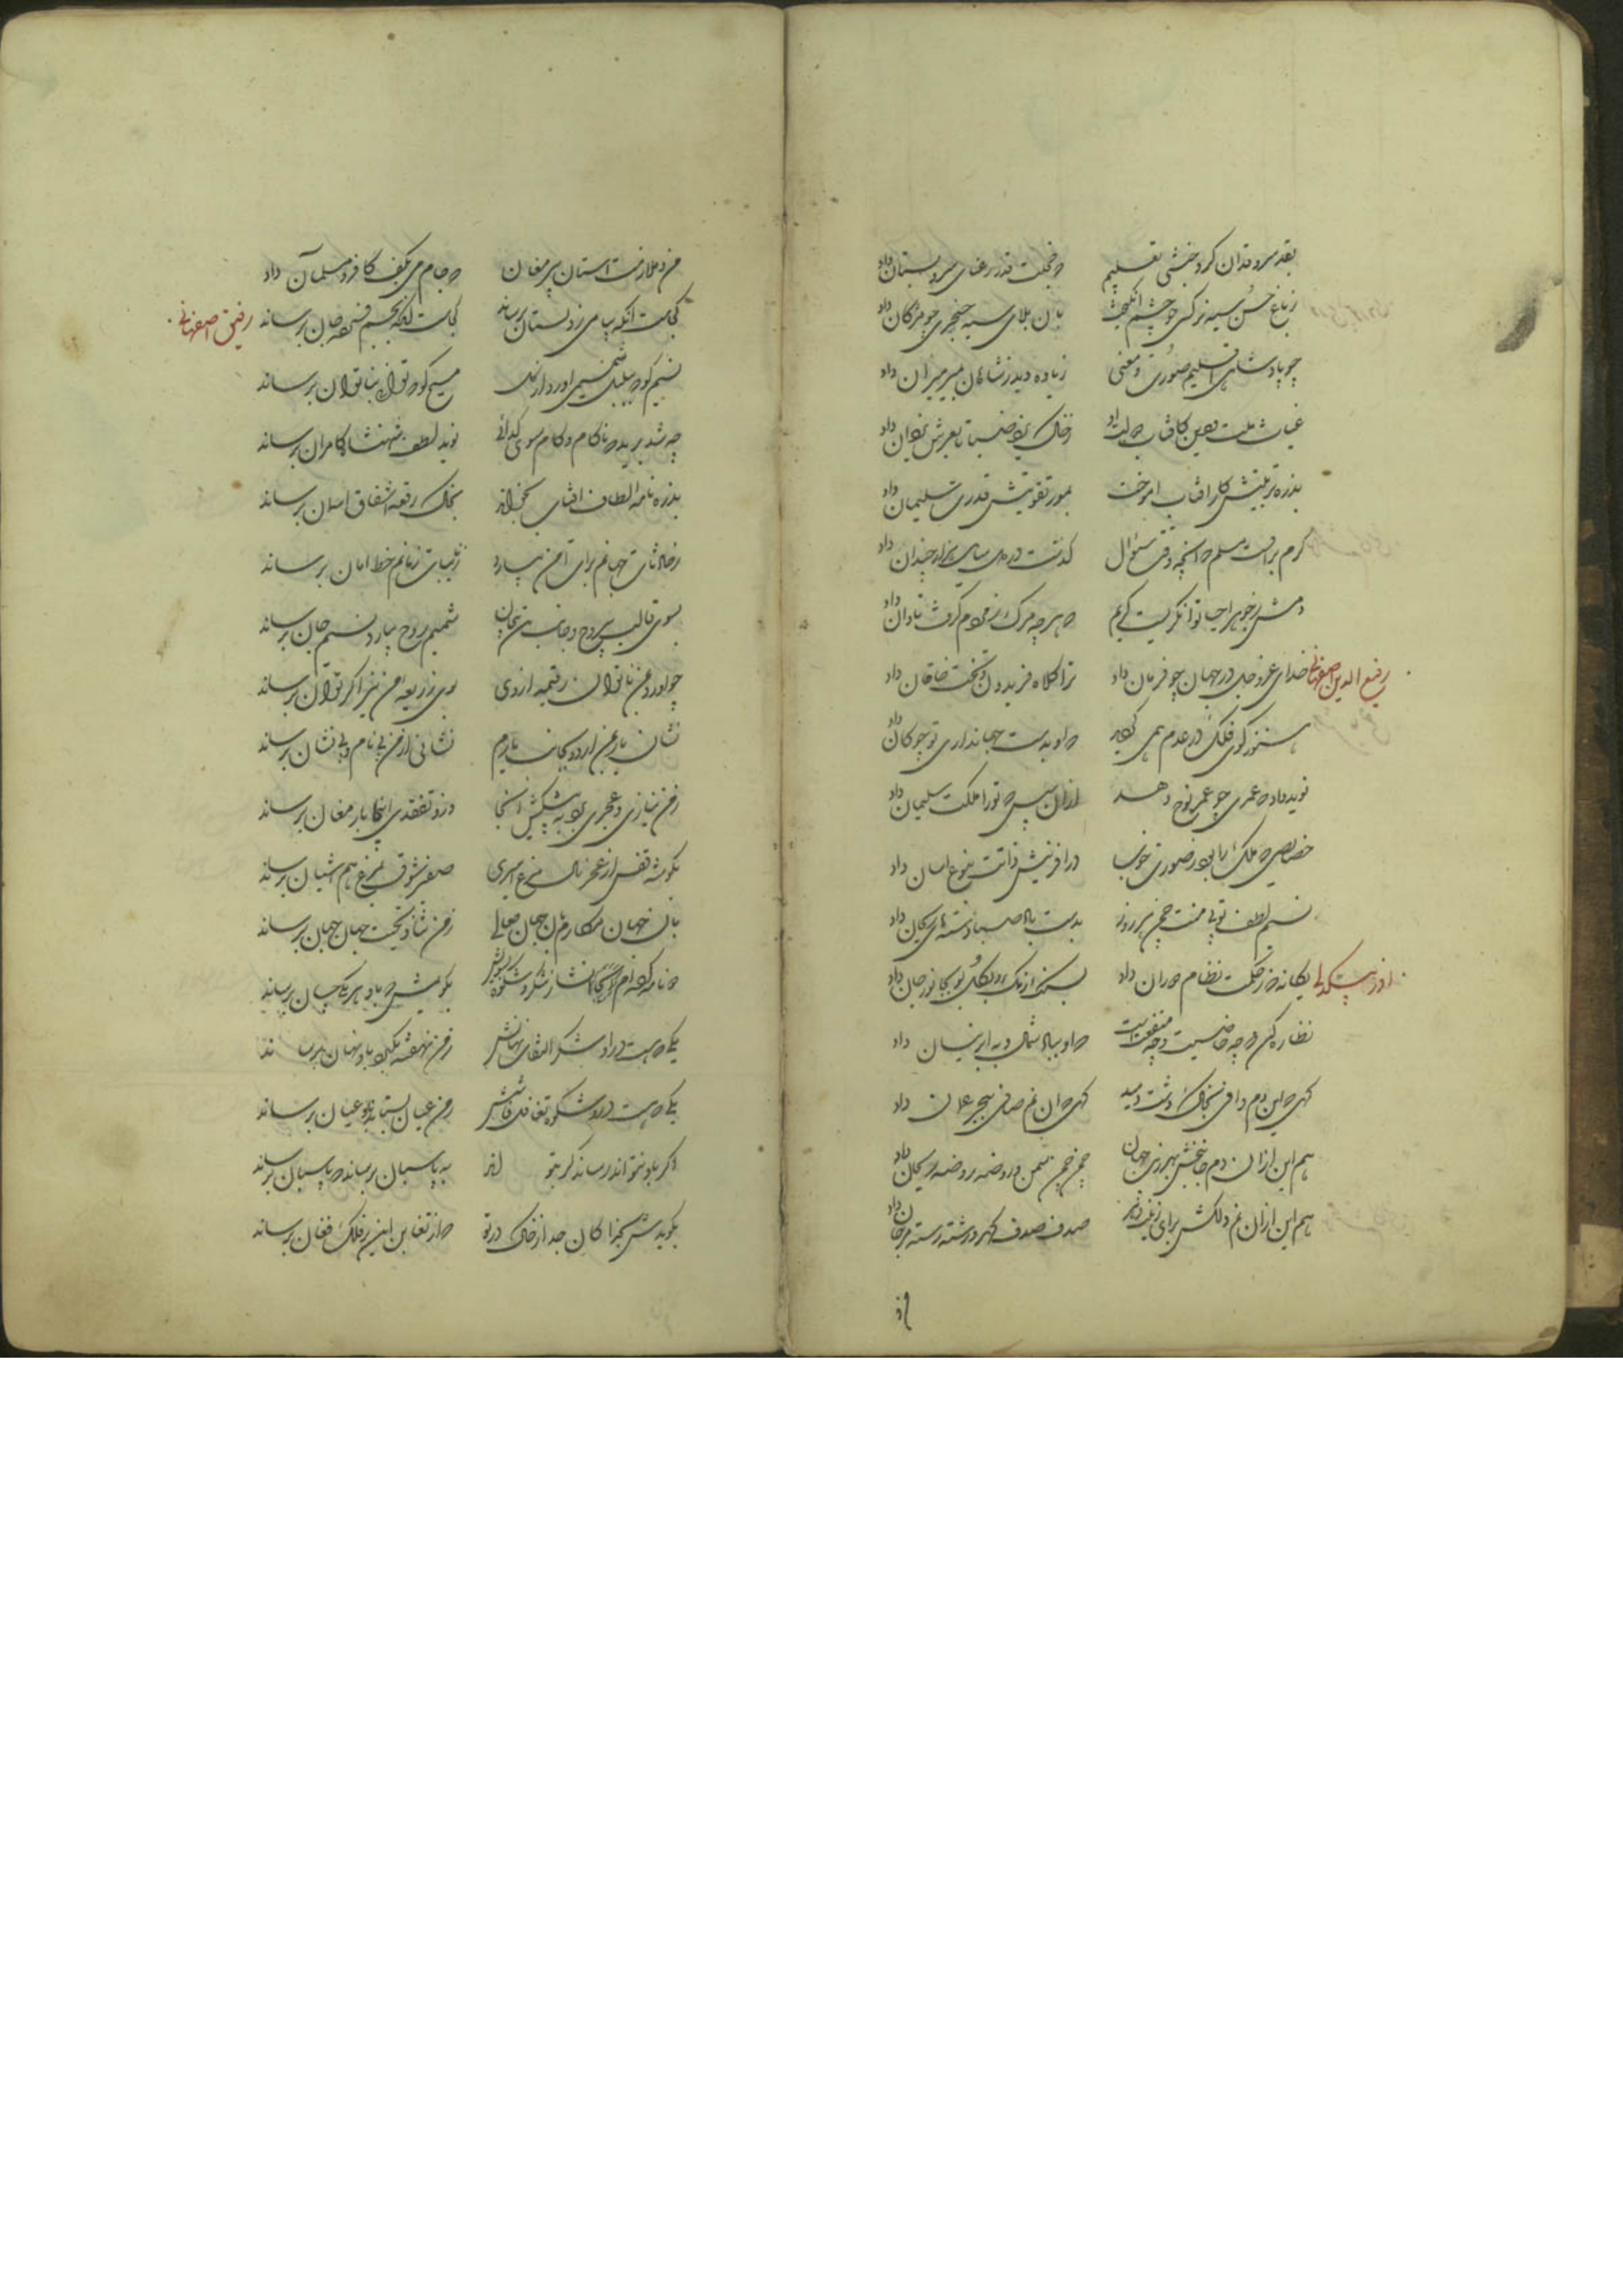 بقد سروقدان کرد بخششی تعلیم که خجلت قد رعنای سرو بستان داد
ز باغ حسن سیه نرکسی چو چشم انکیخت بان بلای سیه خنجری چو مژکان داد
چو پادشاهی اقلیم صورت و معنی زیاده دید ز شاهان بمیر میران داد
غیاث ملت و دین کافتاب
بذره تربیتش کار افتاب اموخت بمور تقویتش قدرت سلیمان داد
کرم براوست مسلم که انچه وقت سؤال کذشت در دل سایل هزار چندان داد
دمش بخو احیا توانکریست کریم که هرچه مرک ز مردم کرفت تاوان داد
رفیع الدین اصفهانی
خدای عزوجل در جهان چو فرمان داد ترا کلاه فریدون و تخت خاقان داد
هنوز کوی فلک در عدم همی کردید که او بدست جهانداری تو چوکان داد
نوید داد که عمری چو عمر نوح دهد ازان سپس که تو را ملکت سلیمان داد
خصایصی که ملک را بود ز صورت خوب در افرینش ذاتت بنوع انسان داد
نسیم لطف تو بی منت چمن هر روز بدست باد صبا دسته های ریحان داد
اذر بیکدلی
یکانه که ز حکمت نظام دوران داد
نظاره کن که چه خاصیت و چه منفعت است که او بباد شمال و به ابر نیسان داد
کهی که این دم صافی بخاک دشت دمید کهی که ان نم صافی ببحر عمان داد
هم این ازان دم جانبخش بهر زیب جهان چمن چمن سمن و روضه روضه ریحان داد
هم این ازان نم دلکش برای زینت دهر صدف صدف کهر و رشته رشته مرجان داد
من و ملازمت استان پیر مغان که جام می بکف کافر و مسلمان داد
رفیق اصفهانی
کجاست انکه پیامی ز دلستان برساند کجاست انکه بجسم فسرده جان برساند
نسیم کو که ببلبل شمیمی اورد از کل مسیح کو که توانی بناتوان برساند
چه شد برید که ناکام و کام سوی کدائی نوید لطف شهنشاه کامران برساند
بذره نامه الطاف افتاب بخواند بخاک رقعه اشفاق اسمان برساند
ز حادثات جهانم برات امن بیارد ز نایبات زمانم خط امان برساند
بسوی قالب بیروح و جانب تن بیجان شمیم روح بیارد نسیم جان برساند
چو اورد بمن ناتوان رقیمه ازوی بوی ذریعه من نیز اکر توان برساند
نشان یار بمن ارد و بجانب یارم نشانی از من بی نام و بی نشان برساند
ز من نیازی و عجزی برد به پیشکش انجا وزو تفقدی اینجا بارمغان برساند
بکوشه قفس از عجز نال مرغ اسیری صفیر شوق بمرغ هم اشیان برساند
بان جهان مکارم بان جهان معالی ز من ثنا و تحیت جهان جهان برساند
یکی که هست دراو شکر التفات نهانش ز من نهفته بکیرد باو نهان برساند
یکی که هست در او شکوه تغافل فاشش ز من عیان بستاند باو عیان برساند
اکر باو نتواند رساند کر بتواند به پاسبان برساند که پاسبان برساند
بکویدش که بخاک که از تغابن این بر فلک فغان برساند